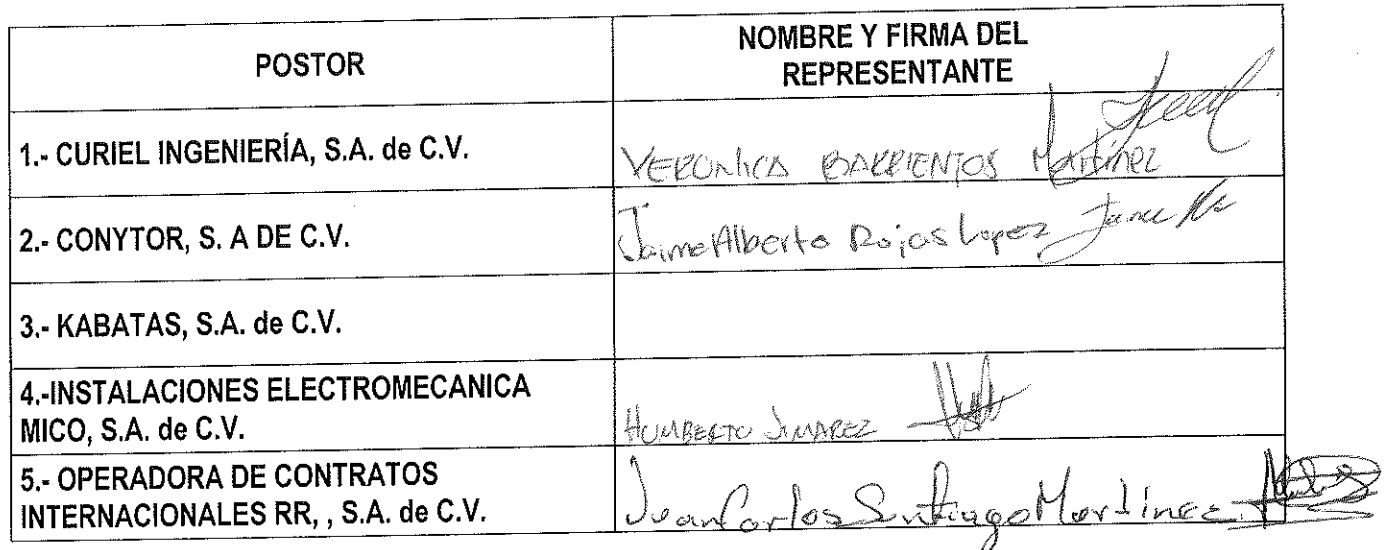 POSTOR
NOMBRE Y FIRMA DEL
REPRESENTANTE
1.- CURIEL INGENIERÍA, S.A. de C.V.
VERONICA BARRIENTOS Martínez
2.- CONYTOR, S. A DE C.V.
Jaime Alberto Rojas Lopez
3.- KABATAS, S.A. de C.V.
4.-INSTALACIONES ELECTROMECANICA
MICO, S.A. de C.V.
HUMBERTO
5.- OPERADORA DE CONTRATOS
INTERNACIONALES RR, , S.A. de C.V.
Juan Carlos Santiago Martínez